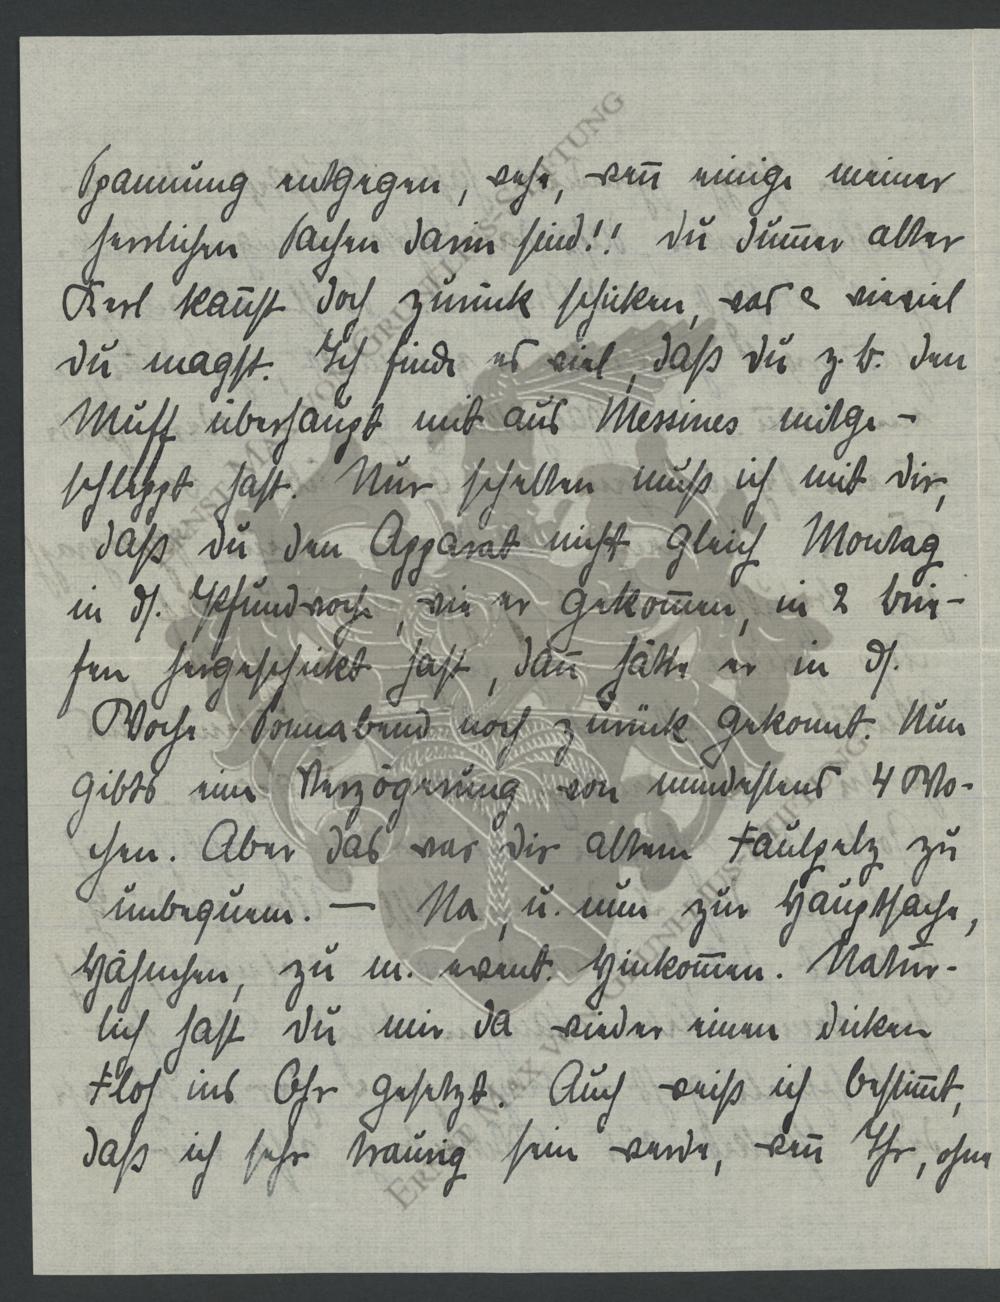 Spannung entgegen, wehe, weñ einige meiner
herrlichen Sachen darin sind!! Du dum̃er alter
Kerl kañst doch zurück schicken, was & wieviel
Du magst. Ich finde es viel, daß Du z. B. den
Muff überhaupt mit aus Messines mitge-
schleppt hast. Nur schelten muß ich mit Dir,
daß Du den Apparat nicht gleich Montag
in ds. Pfundwoche, wie er gekom̃en, in 2 Brie-
fen hergeschickt hast, dañ hätte er in ds.
Woche Sonnabend noch zurück gekonnt. Nun
gibts eine Verzögerung von mindestens 4 Wo-
chen. Aber das war Dir altem Faulpelz zu
unbequem. — Na, u. nun zur Hauptsache,
Hähnchen, zu m. event. Hinkom̃en. Natür-
lich hast Du mir da wieder einen dicken
Floh ins Ohr gesetzt. Auch weiß ich bestim̃t,
daß ich sehr traurig sein werde, weñ Ihr, ohne
ERNST MAX VON GRUNELIUS-STIFTUNG
ERNST MAX VON GRUNELIUS-STIFTUNG